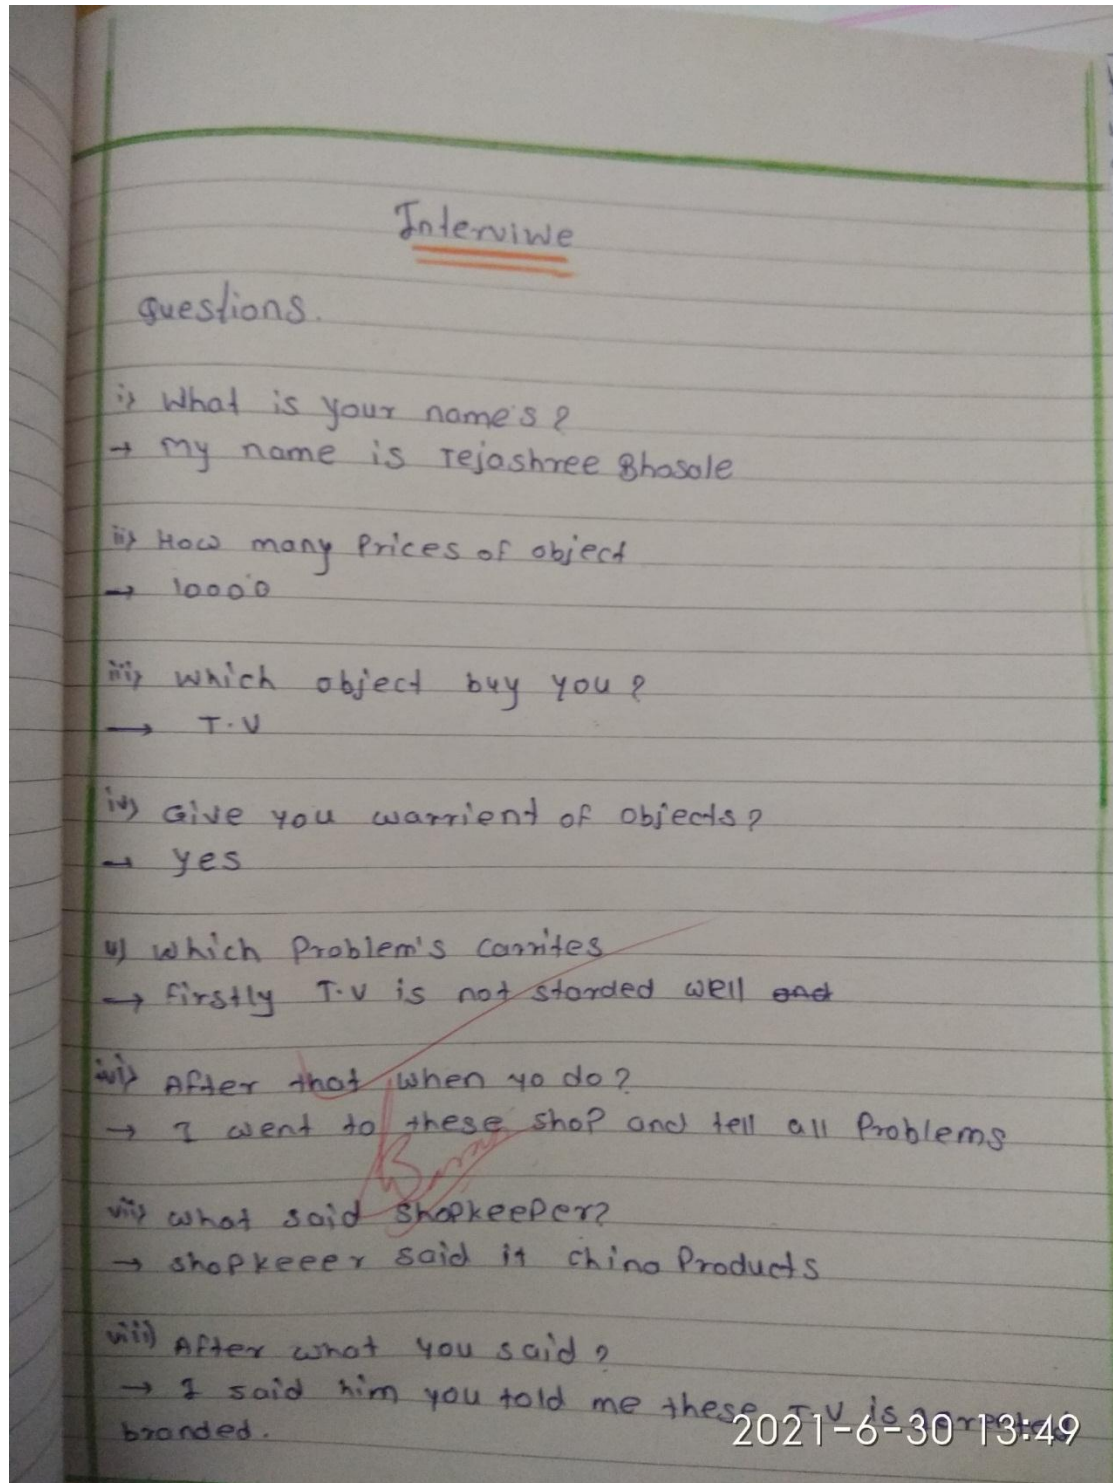 Interviwe
Questions.
i) What is your name's?
→ My name is Tejashree Bhosale
ii) How many Prices of object
→ 10000
iii) Which object buy you?
→ T.V
iv) Give you warrient of objects?
→ yes
v) which Problem's carrites
→ firstly T.V is not storded well and
vi) After that when yo do?
→ I went to these shop and tell all Problems
vii) what said shopkeeper?
→ shopkeeer said it china Products
viii) After what you said?
→ I said him you told me these T.V is
branded.
2021-6-30 13:49